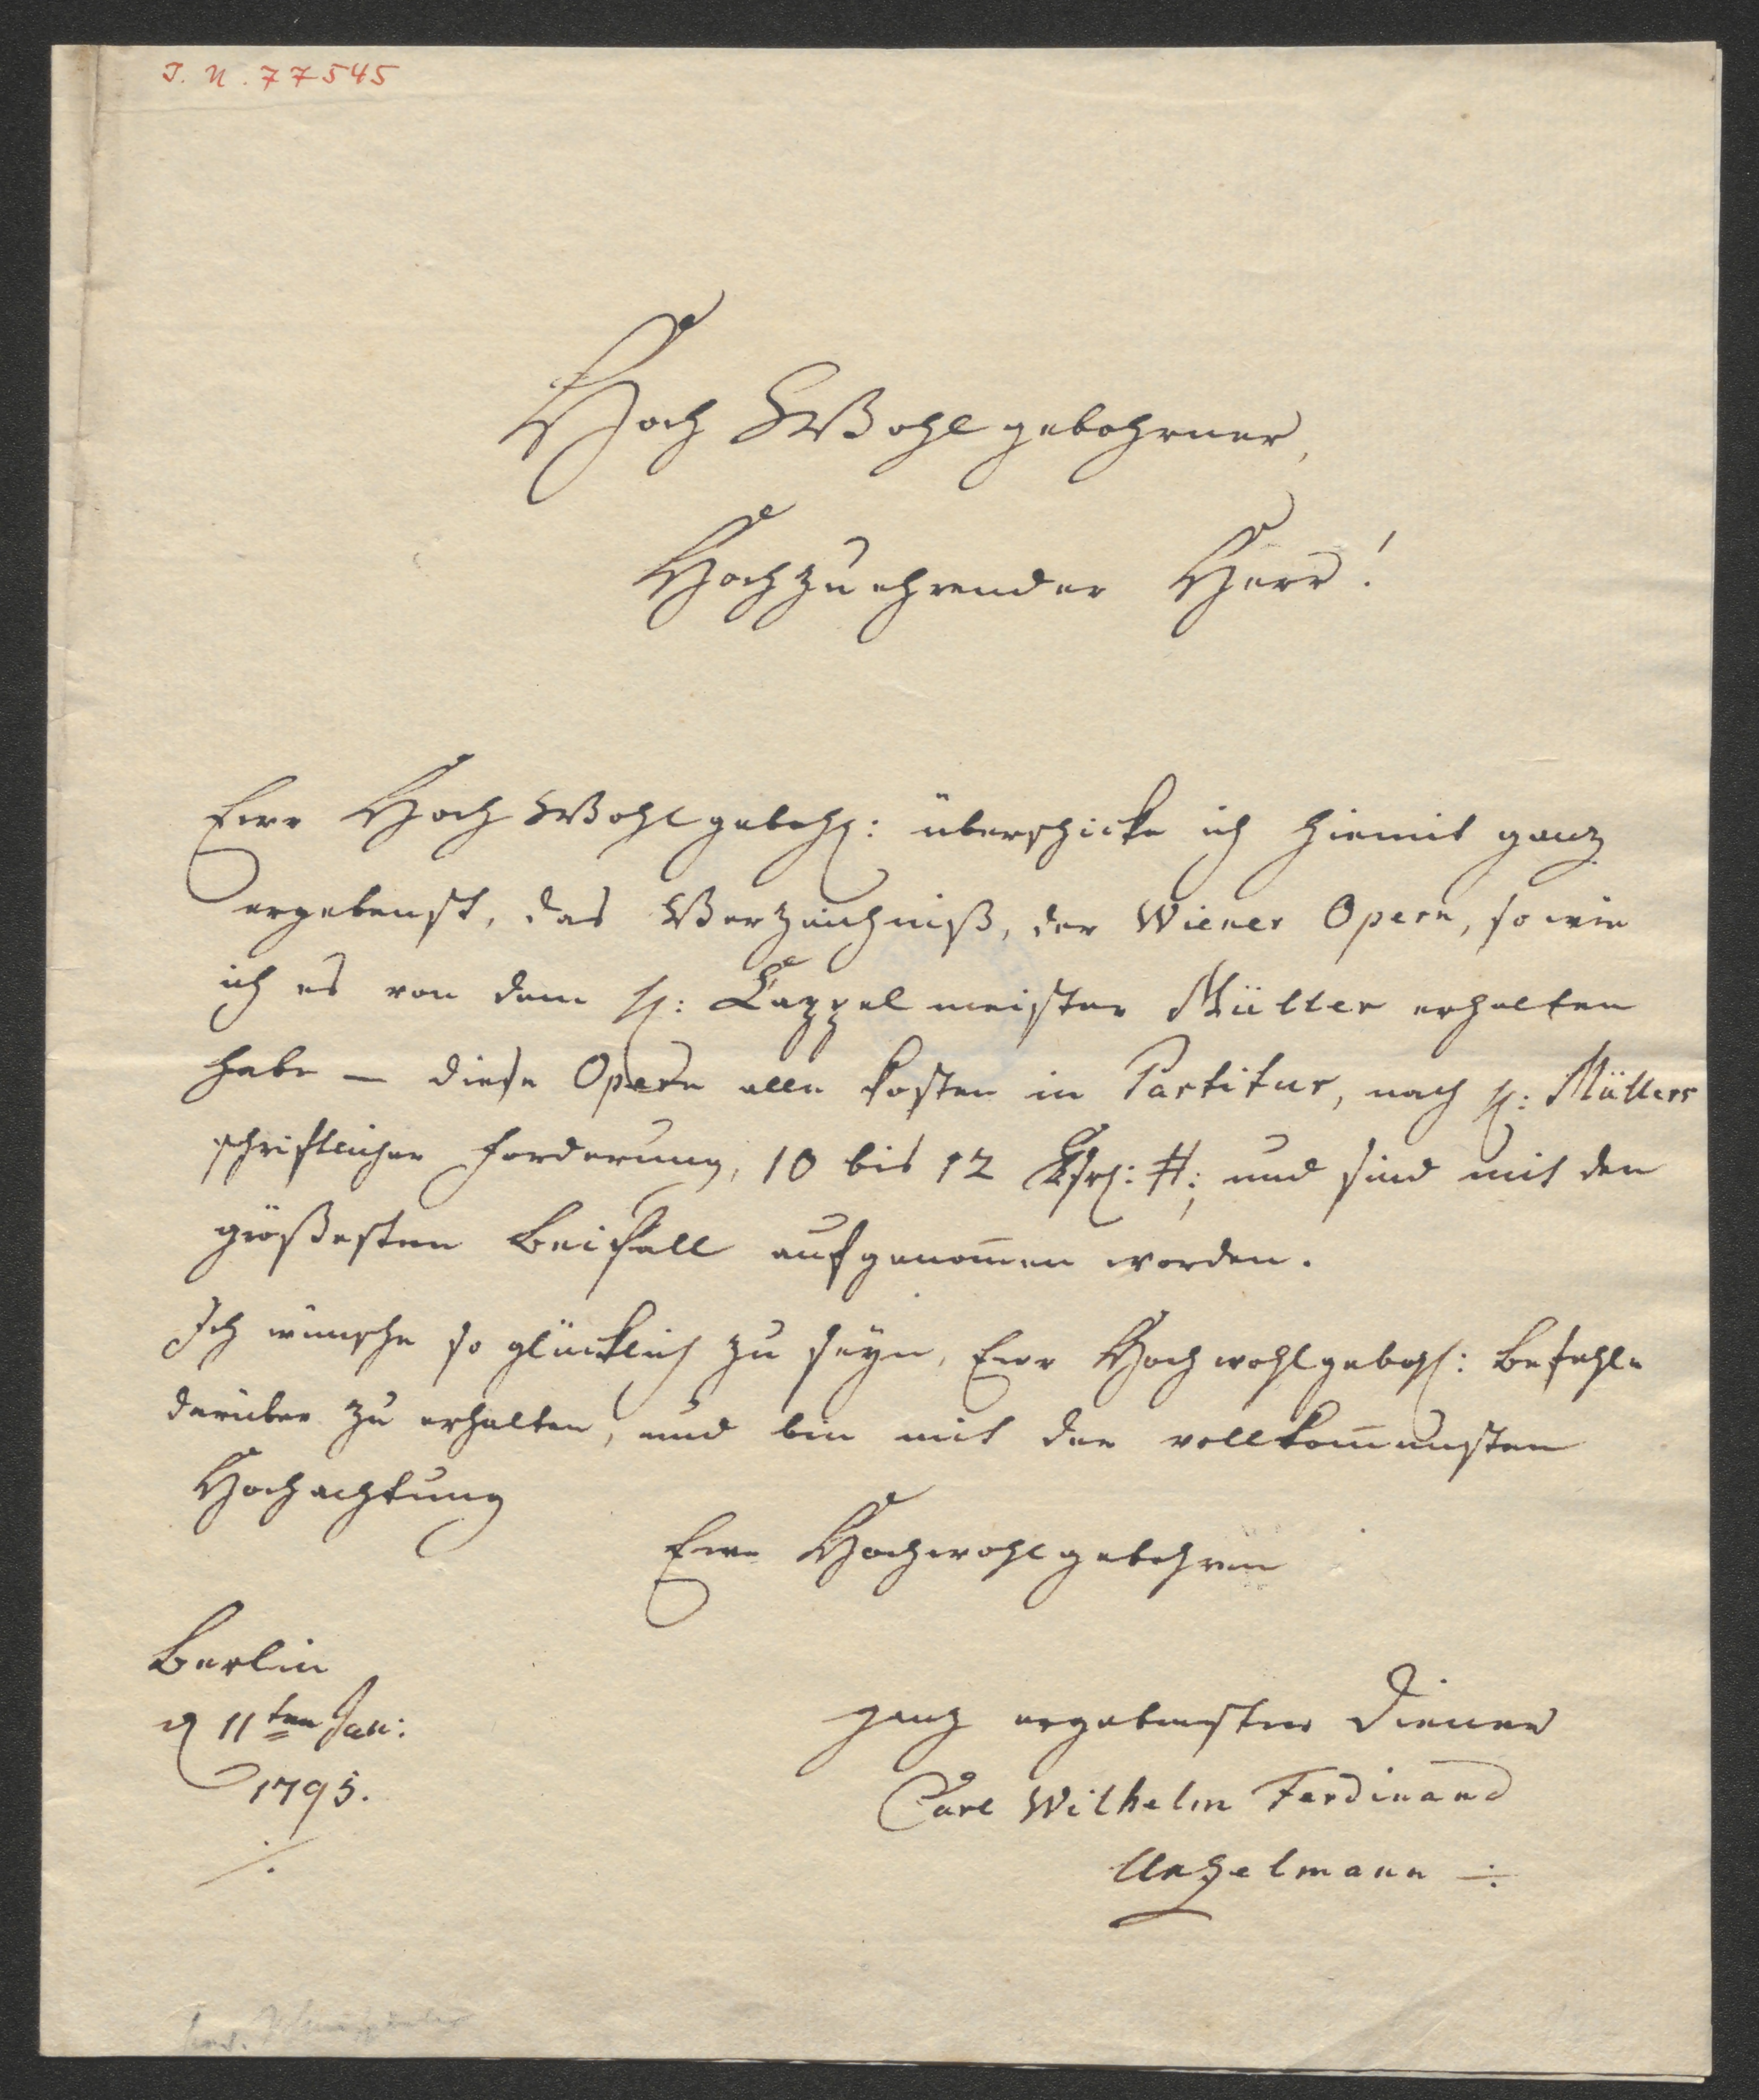 I. N. 77545
Hoch Wohlgebohrner,
Hochzuehrender Herr!
Euer Hoch Wohlgeboh: überschicke ich hiemit ganz
ergebenst, das Verzeichniß, der Wiener Opern, so wie
ich es von dem H: Cappelmeister Müller erhalten
habe — diese Opern alle kosten in Partitur, nach H: Müllers
schriftlicher Forderung, 10 bis 12 #; und sind mit den
größesten Beifall aufgenom̄en worden.
Ich wünsche so glücklich zu seyn, Euer Hochwohlgeboh: Befehle
darüber zu erhalten, und bin mit der vollkom̄ensten
Hochachtung
Euer Hochwohlgebohren
Berlin
d 11ten Jan:
1795.
ganz ergebenster Diener
Carl Wilhelm Ferdinand
Unzelmann